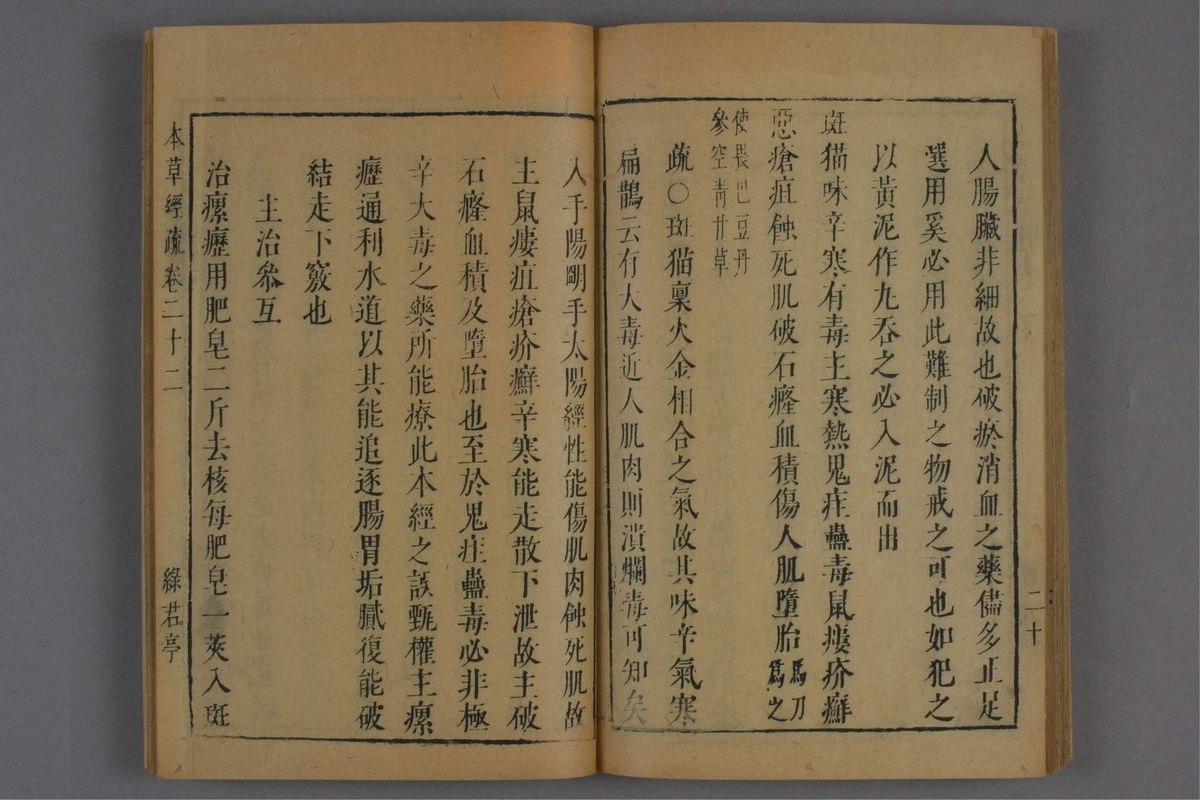 人腸臟非細故也破瘀消血之藥儘多止足
選用奚必用此難制之物戒之可也如犯之
以黃泥作九吞之必入泥而出
斑猫味辛寒有毒主寒熱鬼疰蠱毒鼠瘻疥癬
惡瘡疽蝕死肌破石癃血積傷人肌墮胎馬刀爲之
使畏巴豆丹
參空青甘草
疏○斑猫稟火金相合之氣故其味辛氣寒
扁鵲云有大毒近人肌肉則潰爛毒可知矣
二十
入手陽明手太陽經性能傷肌肉蝕死肌故
主鼠瘻疽瘡疥癬辛寒能走散下泄故主破
石癃血積及墮胎也至於鬼疰蠱毒必非極
辛大毒之藥所能療此本經之誤甄權主瘰
癧通利水道以其能追逐腸胃垢膩復能破
結走下竅也
主治叅互
治瘰癧用肥皂二斤去核每肥皂一莢入斑
本草經疏卷二十二
綠君亭